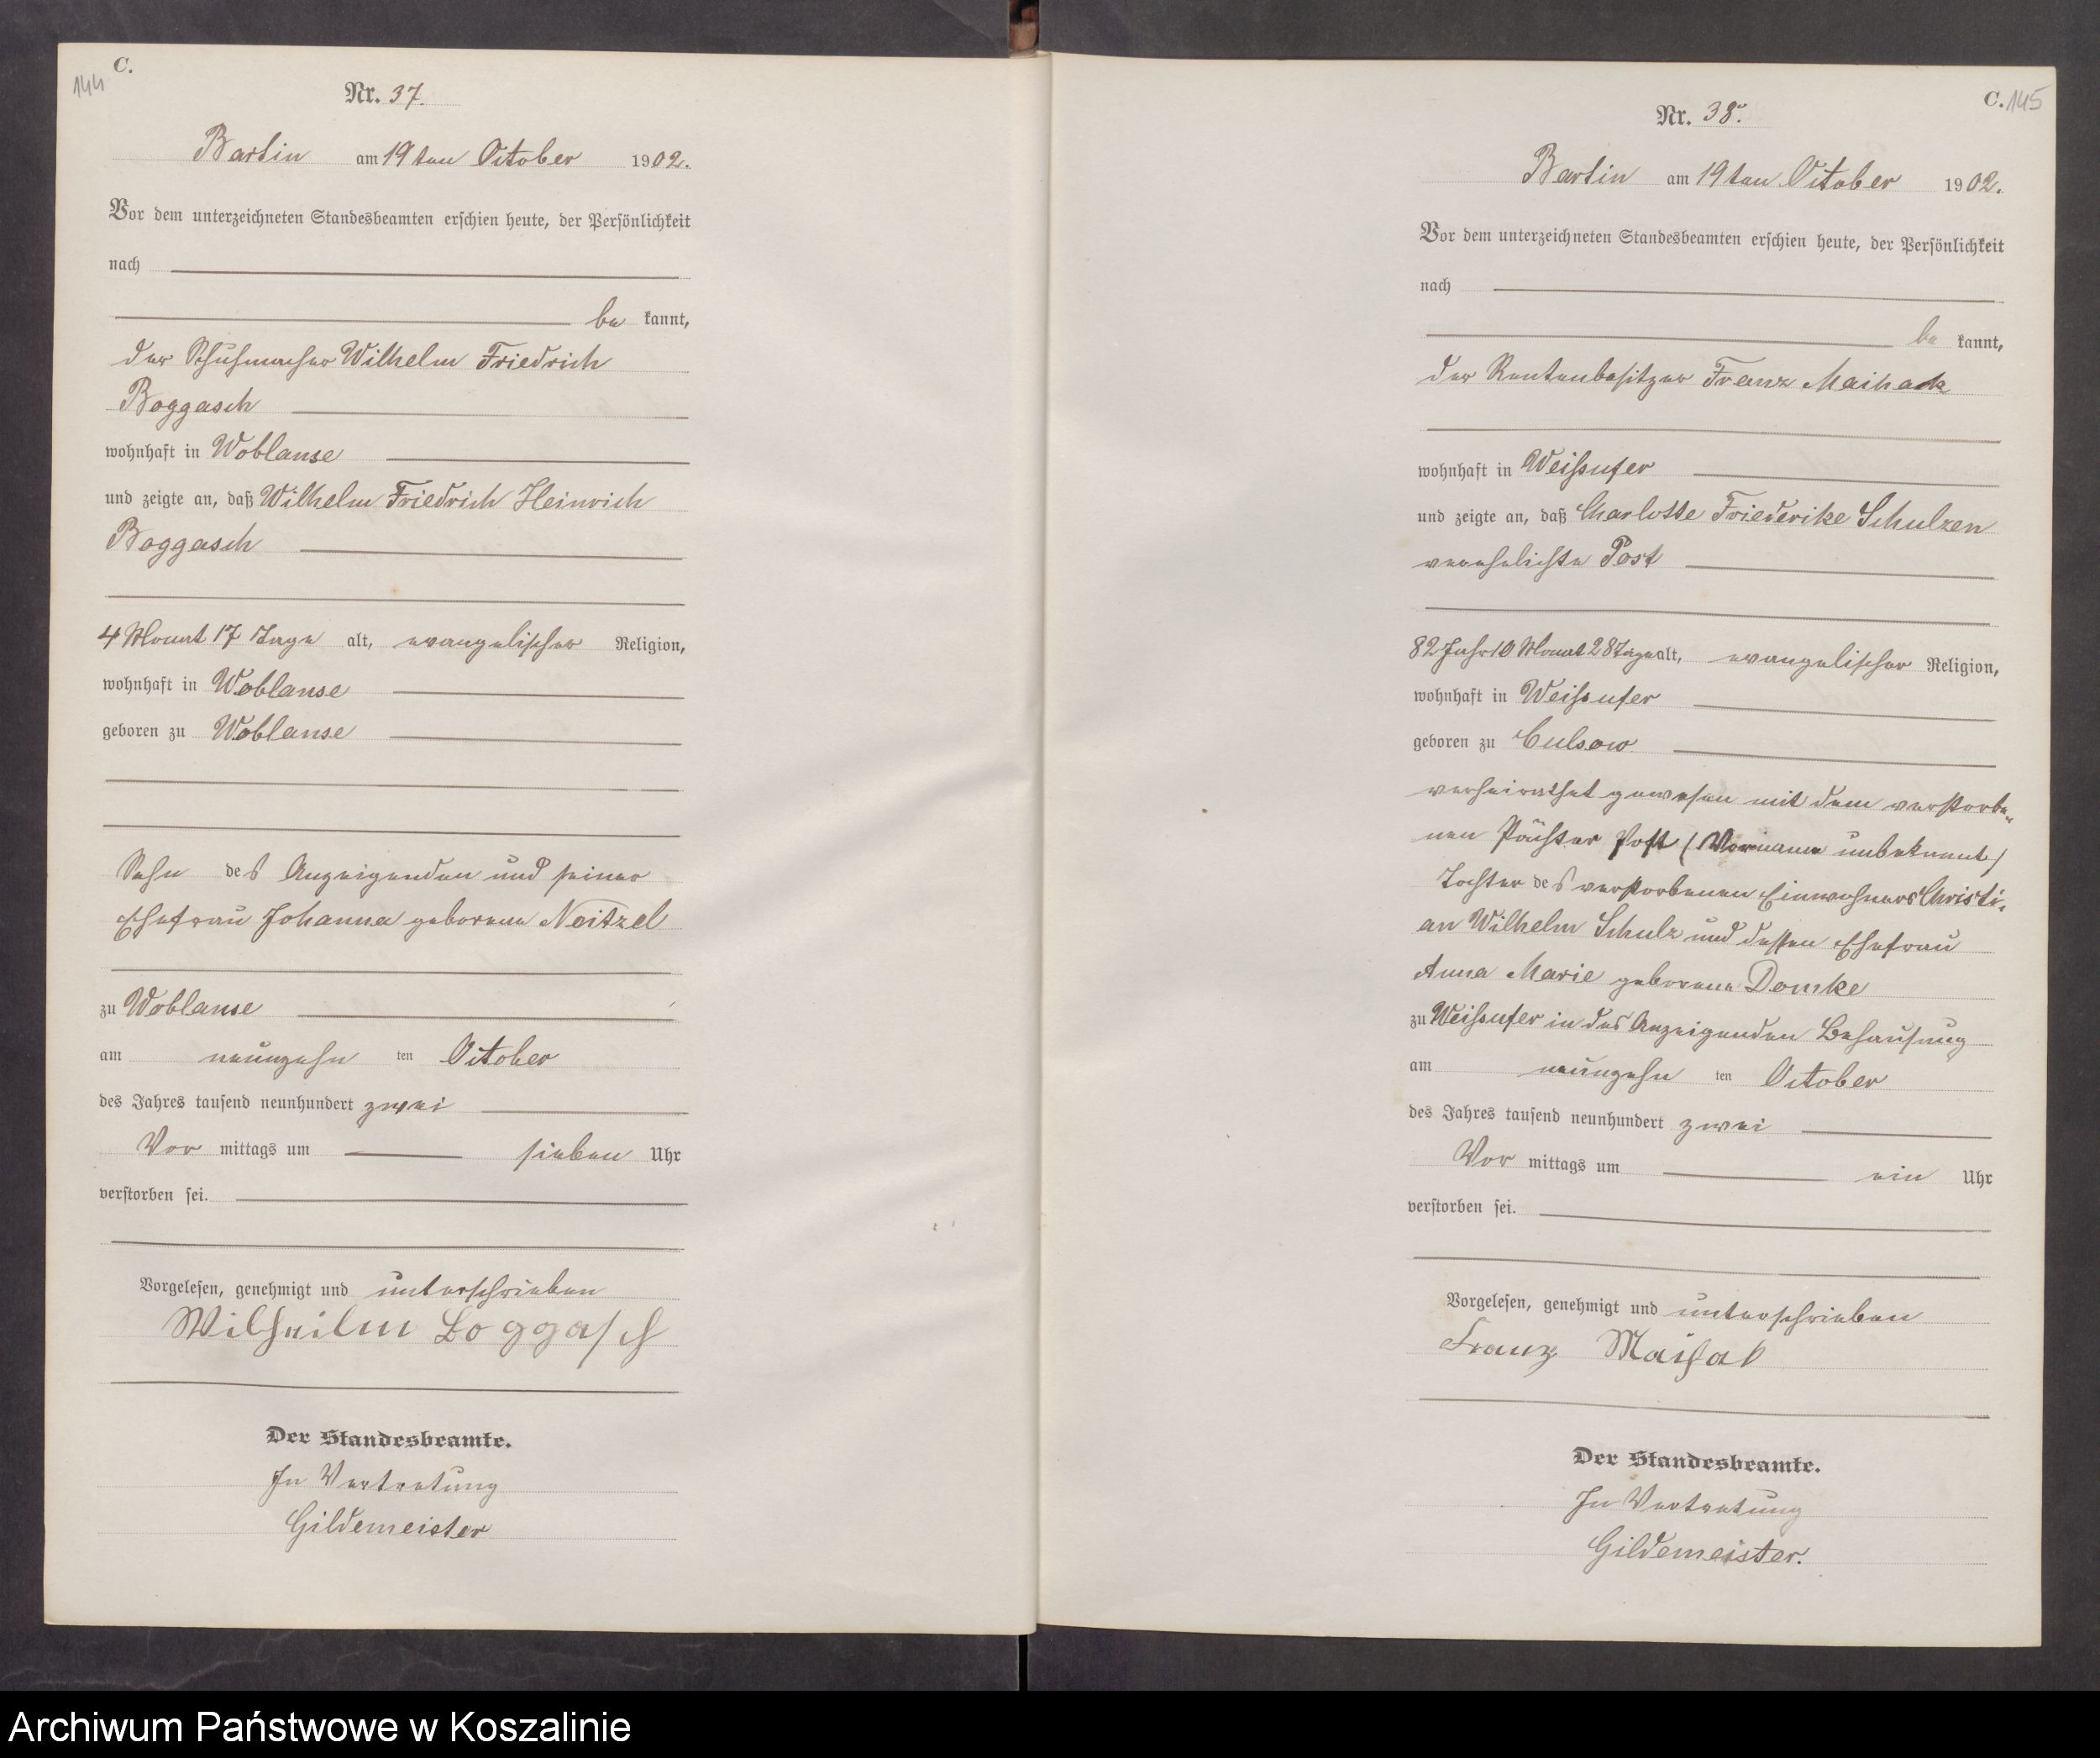 144
C.
Nr. 37.
Bartin am 19ten October 1902.
Vor dem unterzeichneten Standesbeamten erschien heute, der Persönlichkeit
nach
be kannt,
der Schuhmacher Wilhelm Friedrich
Boggasch
wohnhaft in Woblanse
und zeigte an, daß Wilhelm Friedrich Heinrich
Boggasch
4 Monat 17 Tage alt, evangelischer Religion,
wohnhaft in Woblanse
geboren zu Woblanse
Sohn des Anzeigenden und seiner
Ehefrau Johanna geborene Neitzel
zu Woblanse
am neunzehn ten October
des Jahres tausend neunhundert zwei
Vor mittags um sieben Uhr
verstorben sei.
Vorgelesen, genehmigt und unterschrieben
Wilheilm Boggasch
Der Standesbeamte.
In Vertretung
Gildemeister
C. 145
Nr. 38.
Bartin am 19ten October 1902.
Vor dem unterzeichneten Standesbeamten erschien heute, der Persönlichkeit
nach
be kannt,
der Rentenbesitzer Franz Maihack
wohnhaft in Weissufer
und zeigte an, daß Charlotte Friederike Schulzen
verehelichte Post
82 Jahr 10 Monat 28 Tage alt, evangelischer Religion,
wohnhaft in Weissufer
geboren zu Culsow
verheirathet gewesen mit dem verstorbe-
nen Post (Vorname unbekannt)
Tochter des verstorbenen Einwohners Christi-
an Wilhelm Schulz und dessen Ehefrau
Anna Marie geborene Domke
zu Weissufer in des Anzeigenden Behausung
am neunzehn ten October
des Jahres tausend neunhundert zwei
Vor mittags um ein Uhr
verstorben sei.
Vorgelesen, genehmigt und unterschrieben
Franz Maihak
Der Standesbeamte.
In Vertretung
Gildemeister.
Archiwum Państwowe w Koszalinie